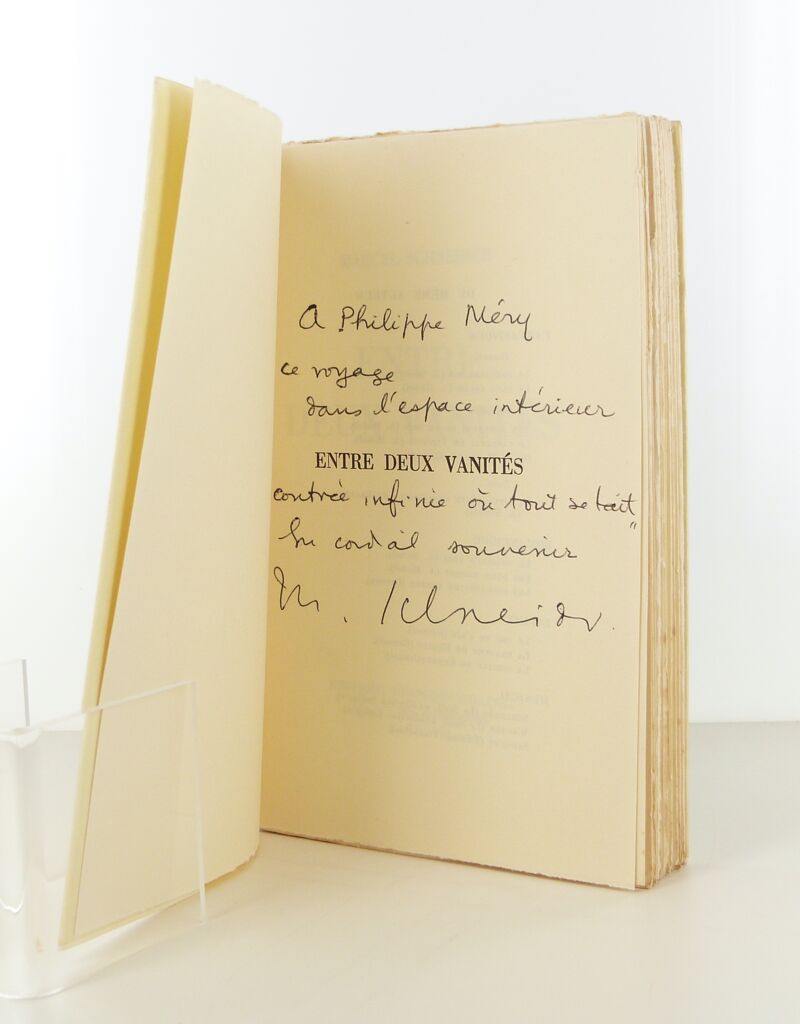 A Philippe Méry
ce voyage
dans l'espace intérieur
ENTRE DEUX VANITÉS
contrée infinie où tout se tait"
En cordial souvenir
M. Schneider.